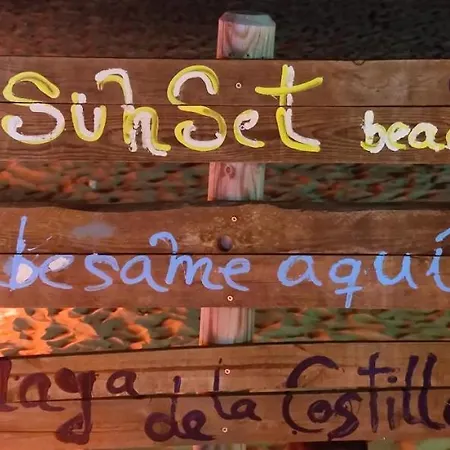 SunSet beac
besame aquí
laya de la Costill